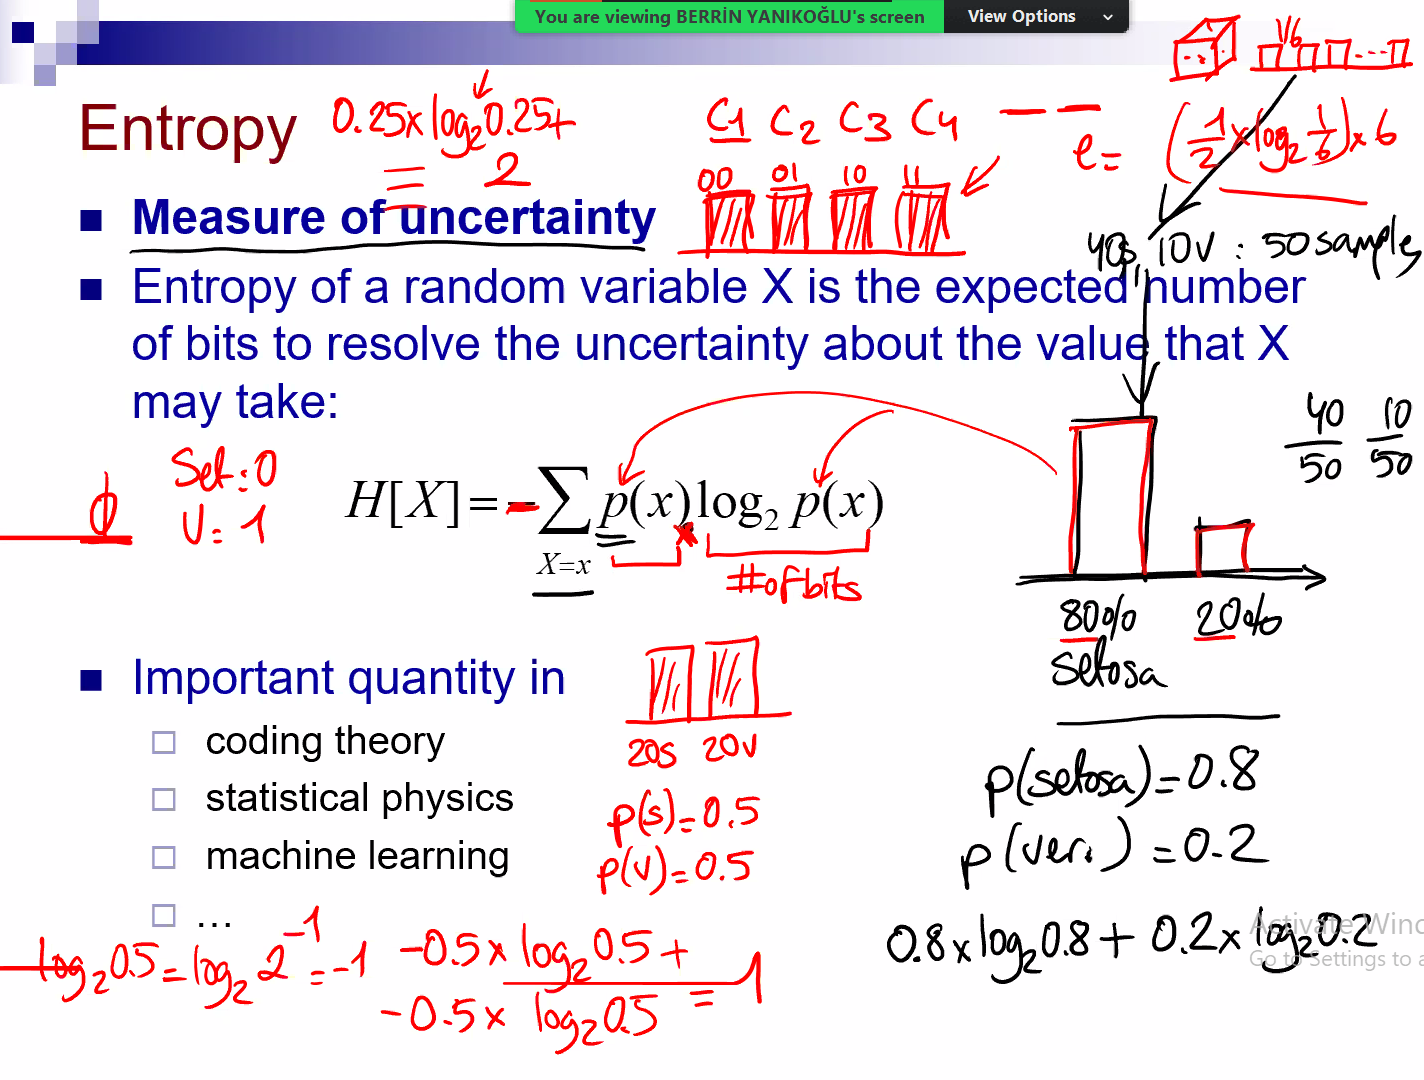 You are viewing BERRİN YANIKOĞLU's screen View Options
1/6
Entropy
0.25x log₂0.25+
2
C1 C2 C3 C4
00 01 10 11
e = (1/2 x log₂ 1/6) x 6
Measure of uncertainty
40s, 10V : 50 samples
Entropy of a random variable X is the expected number
of bits to resolve the uncertainty about the value that X
may take:
40/50 10/50
Set: 0
V = 1
H[X] = - ∑ p(x) log₂ p(x)
X=x
x
# of bits
80% 20%
setosa
Important quantity in
coding theory
statistical physics
machine learning
...
20s 20V
p(s) = 0.5
p(V) = 0.5
p(setosa) = 0.8
p(veri.) = 0.2
0.8 x log₂0.8 + 0.2 x log₂0.2
log₂0.5 = log₂ 2⁻¹ = -1
-0.5 x log₂0.5 +
-0.5 x log₂0.5 = 1
Activate Wind
Go to Settings to a